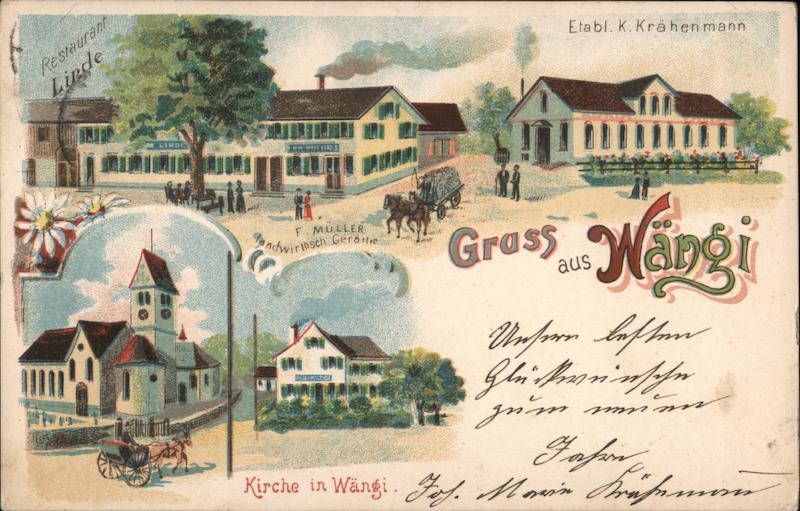 Restaurant
Linde
Etabl. K. Krähenmann
LINDE
F. MÜLLER
Landwirthsch. Geräthe
Gruss
aus Wängi
Unsere besten
Glückwünsche
zum neuen
Jahre
Joh. Marie Krähenmann
Kirche in Wängi.